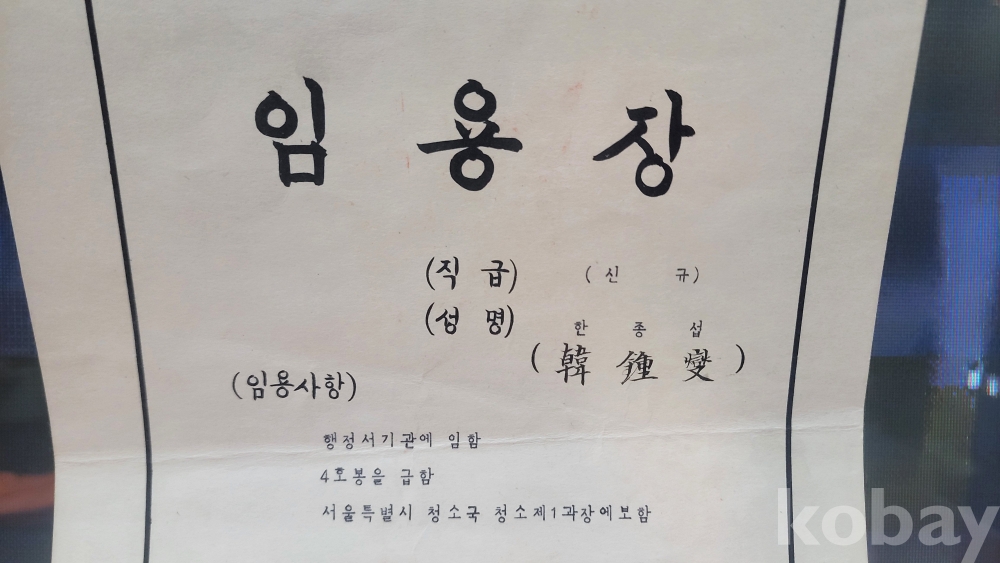 임 용 장
(직 급) (신 규)
(성 명) 한 종 섭
(韓 鍾 燮)
(임용사항)
행정서기관에 임함
4호봉을 급함
서울특별시 청소국 청소제1과장에보함
kobay